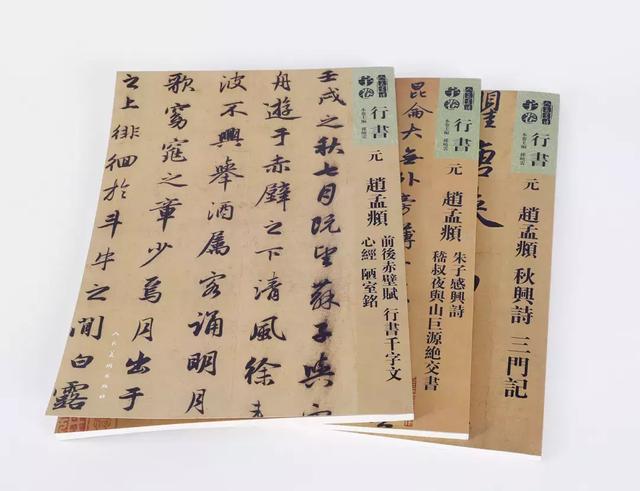 壬戌之秋七月既望蘇子與
舟遊于赤壁之下清風徐
波不興舉酒属客誦明月
歌窈窕之章少焉月出于
之上徘徊於斗牛之間白露
人民美術出版社
行書
元 趙孟頫
前後赤壁賦 行書千字文
心經 陋室銘
昆侖大無外旁薄
行書
元 趙孟頫
朱子感興詩
嵇叔夜與山巨源絶交書
行書
元 趙孟頫 秋興詩 三門記